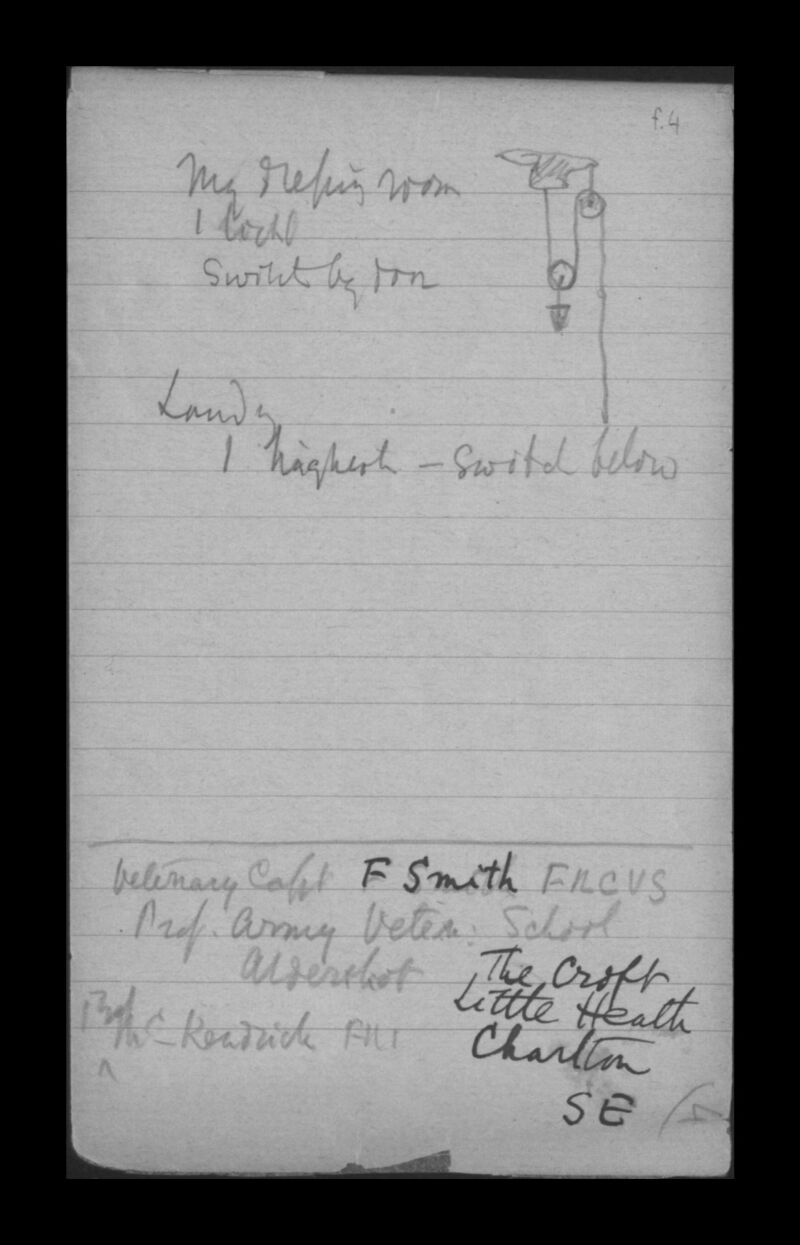 f.4
My dressing room
1 
Switch by door
Landg
1 highest - Switch below
Veterinary Capt F Smith FRCVS
Prof. Army Veter: School
Aldershot
The Croft
Little Heath
Prof
McKendrick
Charlton
SE